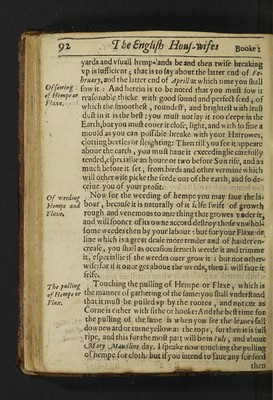 92 The English Hous-wifes Booke 2
yards and vsuall hemp-lands be and then twise breaking
vp is sufficient; that is to say about the latter end of Fe-
bruary, and the latter end of Aprill at which time you shall
Of sowing of Hempe or Flaxe.
sow it: And herein is to be noted that you must sow it
reasonable thicke with good sound and perfect seed, of
which the smoothest, roundest, and brightest with least
dust in it is the best: you must not lay it too deepe in the
Earth, but you must couer it close, light, and with so fine a
mould as you can possible breake with your Harrowes,
clotting beetles or sleighting: Then till you see it appeare
about the earth, you must haue it exceeding carefully
tended, especially an houre or two before Sun rise, and as
much before it set, from birds and other vermine which
will otherwise picke the seede out of the earth, and so de-
ceiue you of your profit.
Of weeding Hempe and Flaxe.
Now for the weeding of hempe you may saue the la-
bour, because it is naturally of it selfe swift of growth
rough and venemous to any thing that growes vnder it,
and will sooner of its owne accord destroy those vnwhol-
some weedes then by your labour: but for your Flaxe or
line which is a great deale more tender and of harder in-
crease, you shall as occasion serueth weede it and trimme
it, especiallie if the weedes ouer grow it: but not other-
wise: for if it once get aboue the weeds, then it will saue it
selfe.
The pulling of Hempe or Flax.
Touching the pulling of Hempe or Flaxe, which is
the manner of gathering of the same: you shall vnderstand
that it must be pulled vp by the rootes, and not cut as
Corne is either with sithe or hooke: And the best time for
the pulling of the same is when you see the leaues fall
downeward or turne yellow at the tops, for then it is full
ripe, and this for the most part will be in Iuly, and about
Mary Maudlins day. I speake now touching the pulling
of hempe for cloth: but if you intend to saue any for seed
then